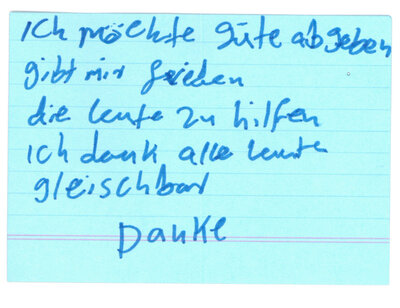 Ich möchte güte abgeben
gibt mir frieden
die leute zu hilfen
Ich dank alle leute
gleischbar
Danke